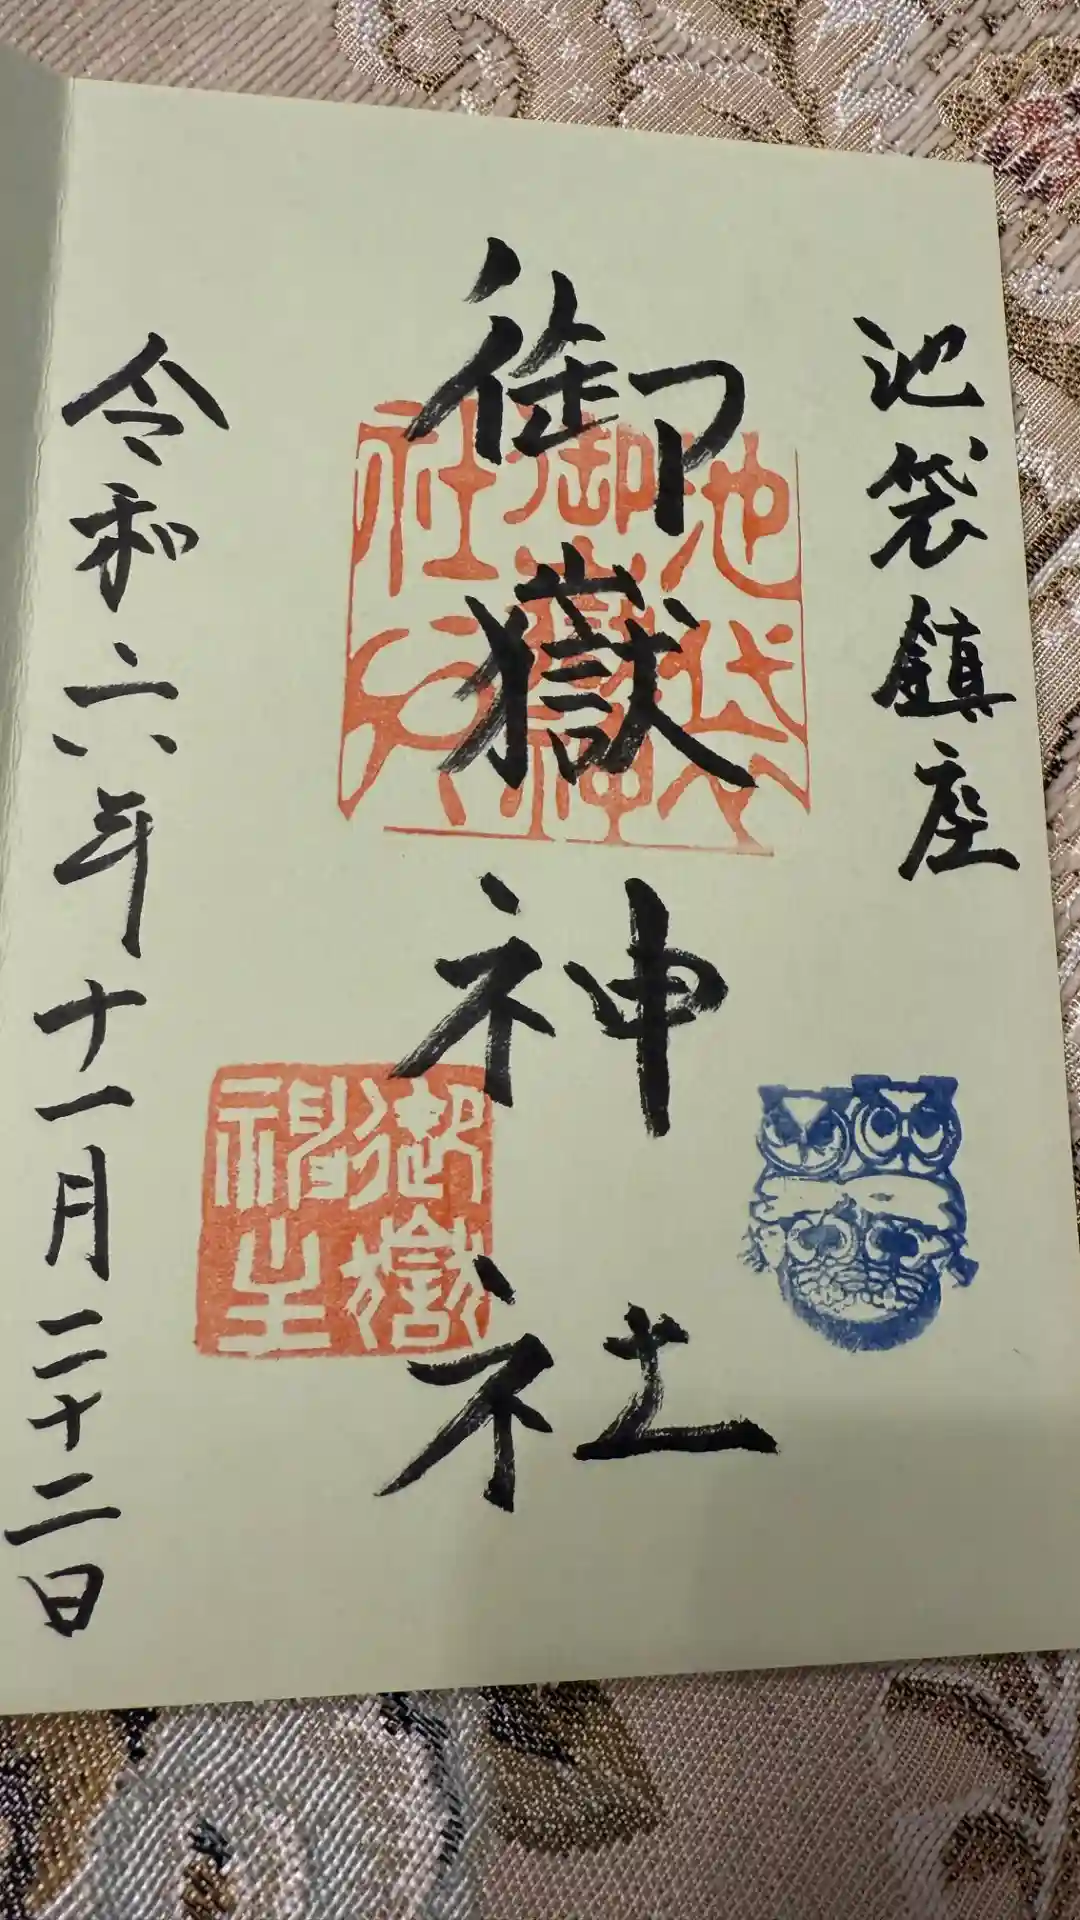 池袋鎮座
御嶽神社
令和六年十一月二十二日
池袋
御嶽神
社
御嶽
神主